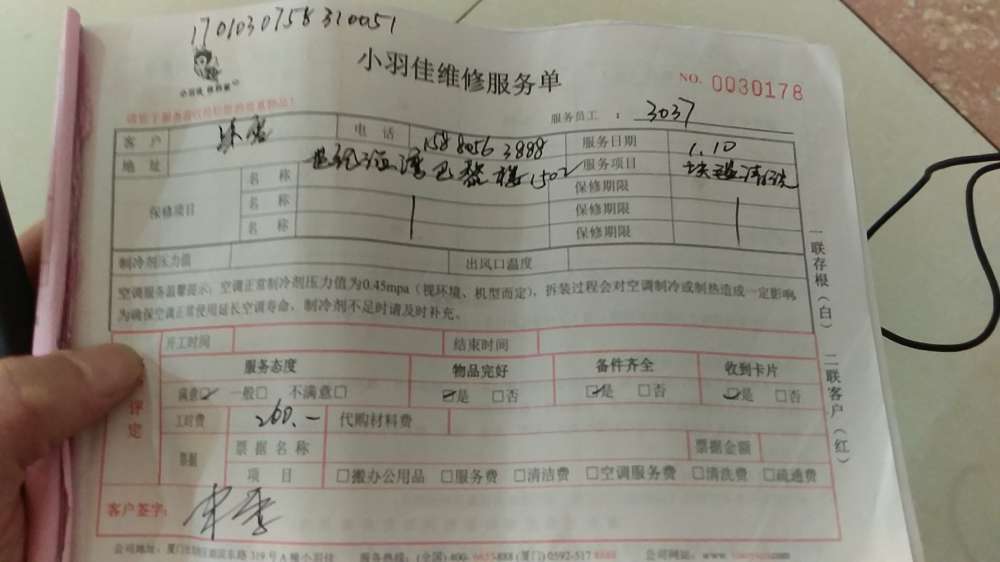 1701030758310051
小羽佳维修服务单
NO. 0030178
小羽佳 依精家
服务员工 : 3037
客户 电话 158 8056 3888 服务日期 1.10
地址 世纪海湾巴黎楼1502 服务项目 清洗
保修项目 名称 保修期限
名称 保修期限
名称 保修期限
制冷剂压力值 出风口温度
空调服务温馨提示:空调正常制冷剂压力值为0.45mpa(视环境、机型而定),拆装过程会对空调制冷或制热造成一定影响
为确保空调正常使用延长空调寿命,制冷剂不足时请及时补充。
一联存根(白) 二联客户(红)
开工时间 结束时间
评定 服务态度 物品完好 备件齐全 收到卡片
满意☑ 一般□ 不满意□ ☑是 □否 ☑是 □否 ☑是 □否
工时费 260.- 代购材料费
票据 票据名称 票据金额
项目 □搬办公用品 □服务费 □清洁费 □空调服务费 □清洗费 □疏通费
客户签字:
公司地址:厦门市 东路319号A幢小羽佳 服务热线:(全国)400- (厦门)0592-517 公司网站:www.